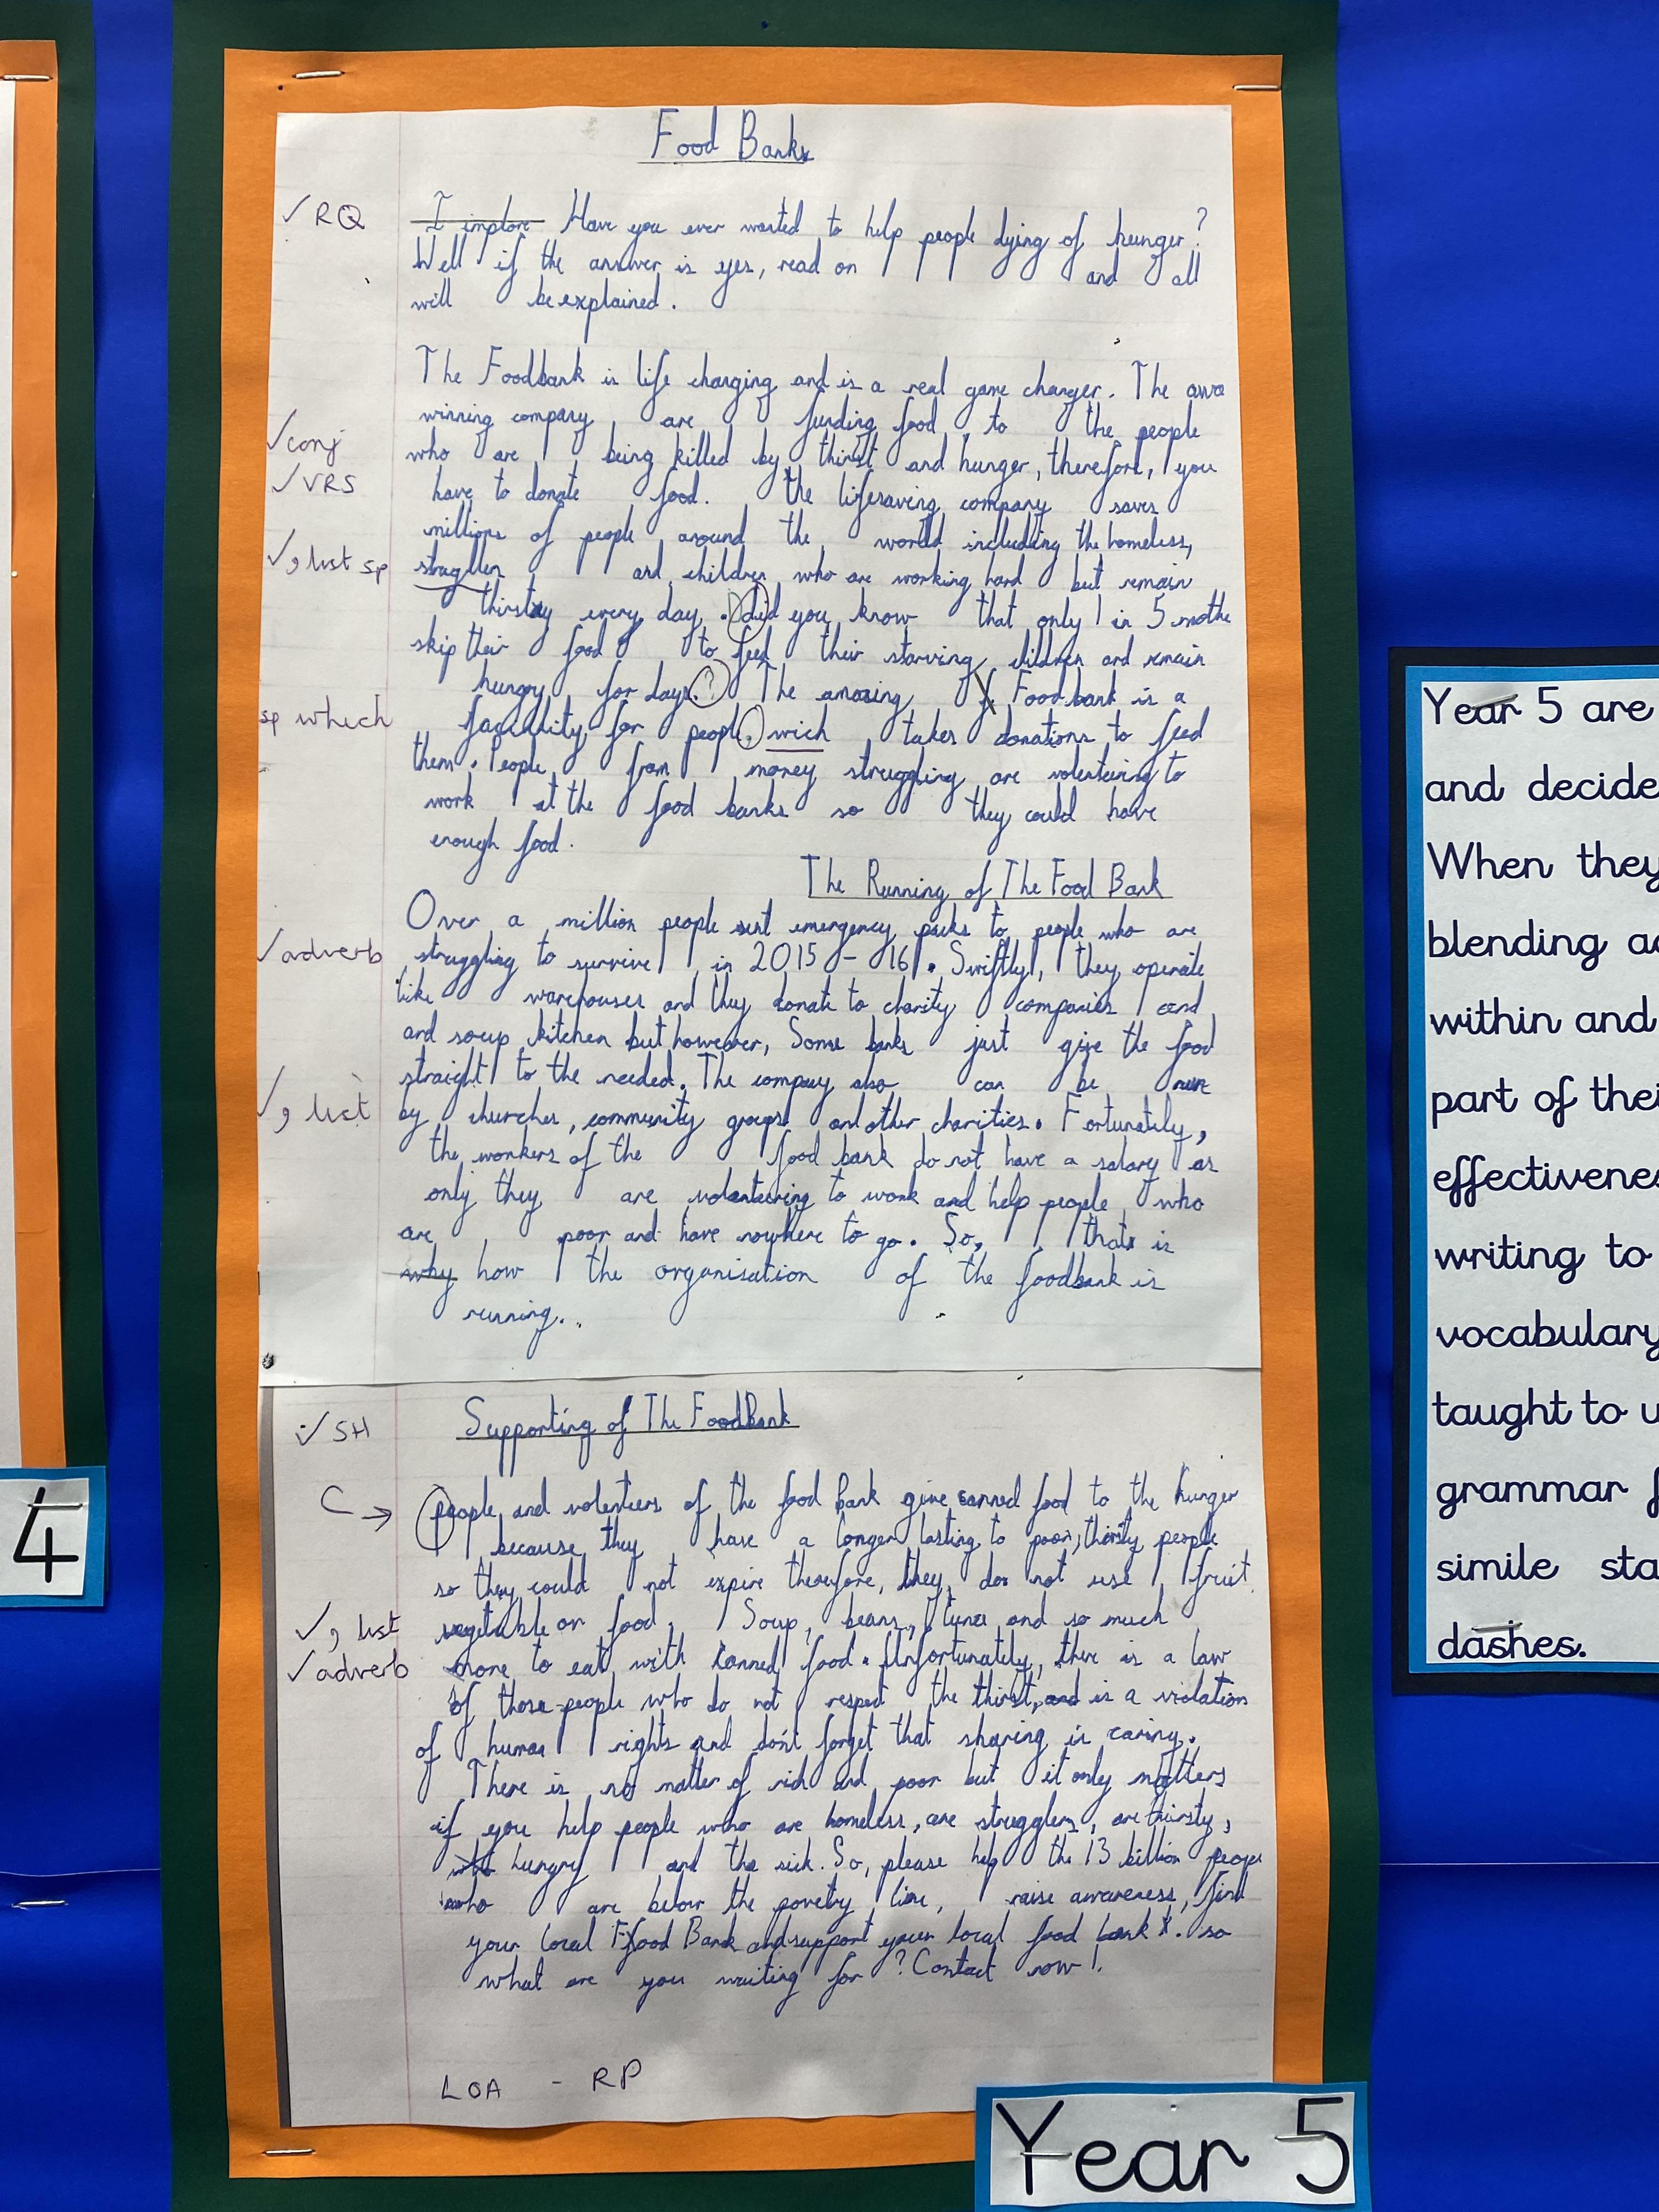 Food Banks
✓ RQ
I implore Have you ever wanted to help people dying of hunger?
Well if the answer is yes, read on and all
will be explained.
The Foodbank is life changing and is a real game changer. The awa
winning company are funding food to the people
✓ conj
who are being killed by thirst and hunger, therefore, you
✓ VRS
have to donate food. the lifesaving company saves
millions of people around the world including the homeless,
✓, list sp
strugllers and children who are working hard but remain
thirsty every day. did you know that only 1 in 5 mothe
skip their food to feed their starving children and remain
hungry for days.? The amazing Foodbank is a
sp which
for people, wich takes donations to feed
them. People from money struggling are volenteering to
work at the food banks so they could have
enough food.
The Running of The Food Bank
Over a million people sent emergency packs to people who are
✓ adverb
struggling to survive in 2015 - 16. Swiftly, they operate
like warehouses and they donate to charity companies
and soup kitchen but however, Some banks just give the food
straight to the needed. The company also can be run
✓, list
by churches, community groups and other charities. Fortunately,
the workers of the food bank do not have a salary as
only they are volenteering to work and help people who
are poor and have nowhere to go. So, that is
why how the organisation of the foodbank is
running.
✓ SH
Supporting of The FoodBank
C →
people and volenteers of the food Bank give canned food to the hunger
because they have a longer lasting to poor, thirsty people
so they could not expire therefore, they do not use fruit
✓, list
vegetable or food. Soup, beans, tuna and so much
✓ adverb
more to eat with canned food. Unfortunately, there is a law
of those people who do not respect the thirst, and is a violation
of human rights and don't forget that sharing is caring.
There is no matter of rich and poor but it only matters
if you help people who are homeless, are strugglers, are thirsty,
hungry and the sick. So, please help the 13 billion
who are below the povetry line, raise awareness, find
your local Food Bank and support your local food bank. so
what are you waiting for? Contact now!
LOA - RP
Year 5
4
Year 5 are
and decide
When they
blending
within and
part of thei
effectivenes
writing to
vocabulary
taught to u
grammar f
simile sta
dashes.